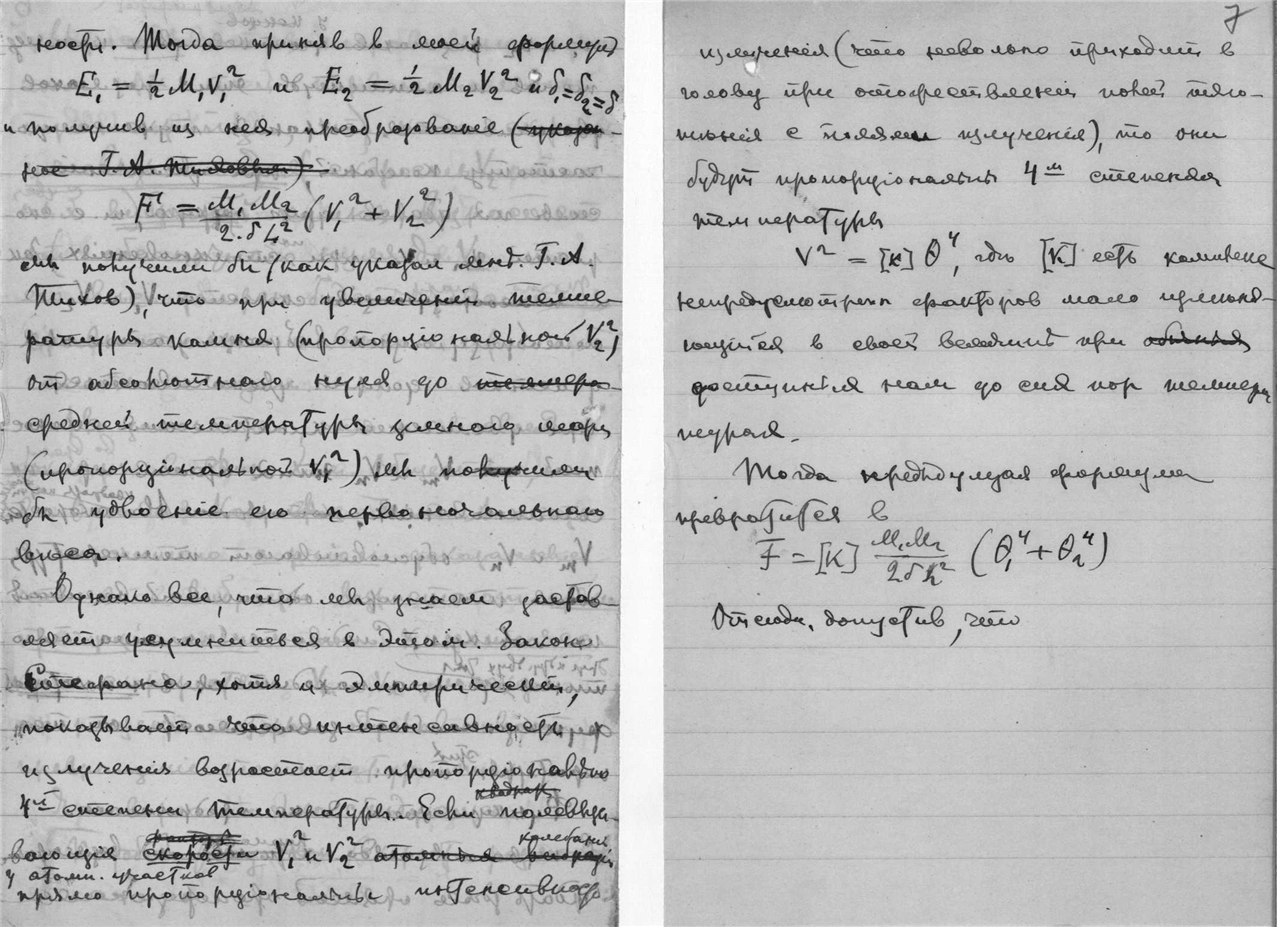 ности. Тогда приняв в моей формуле
E₁ = ½ M₁V₁² и E₂ = ½ M₂V₂² и δ₁=δ₂=δ
и получив из нея преобразованіе (указан-
ное Г. А. Тиховым)
F = M₁M₂ / 2.δL² (V₁² + V₂²)
мы получили бы (как указал мнѣ Г. А.
Тихов), что при увеличеніи темпе-
ратуры камня (пропорціональной V₂²)
от абсолютнаго нуля до темпера-
средней температуры земного шара
(пропорціональной V₁²) мы получили
бы удвоеніе его первоначальнаго
вѣса.
Однако все, что мы знаем застав-
ляет усумниться в этом. Закон
Стефана, хотя и эмпирическій,
показывает что интенсивность
излученія возрастает пропорціонально
4й степени температуры. Если
скорости V₁² и V₂² атомныя колебанія
у атомн. участков
прямо пропорціональны интенсивно
7
излученія (что невольно приходит в
голову при отожествленіи полей тяго-
тѣнія с полями излученія), то они
будут пропорціональны 4м степеням
температуры
V² = [K] θ⁴, гдѣ [K] есть комплекс
непредусмотрен факторов мало измѣня-
ющійся в своей величинѣ при
доступных нам до сих пор темпера
турах.
Тогда предъидущая формула
превратится в
F = [K] M₁M₂ / 2δL² (θ₁⁴ + θ₂⁴)
Отсюда, допустив, что